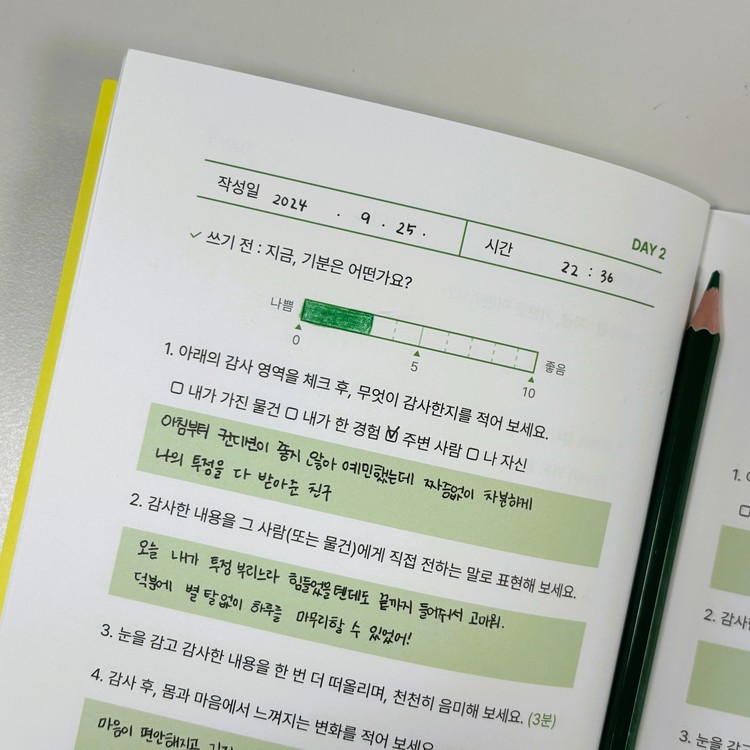 작성일 2024 . 9 . 25 . 시간 22 : 36
DAY 2
✓ 쓰기 전 : 지금, 기분은 어떤가요?
나쁨 좋음
0 5 10
1. 아래의 감사 영역을 체크 후, 무엇이 감사한지를 적어 보세요.
☐ 내가 가진 물건 ☐ 내가 한 경험 ☑ 주변 사람 ☐ 나 자신
아침부터 컨디션이 좋지 않아 예민했는데 짜증없이 차분하게
나의 투정을 다 받아준 친구
2. 감사한 내용을 그 사람(또는 물건)에게 직접 전하는 말로 표현해 보세요.
오늘 내가 투정 부리느라 힘들었을텐데도 끝까지 들어줘서 고마워.
덕분에 별 탈없이 하루를 마무리할 수 있었어!
3. 눈을 감고 감사한 내용을 한 번 더 떠올리며, 천천히 음미해 보세요. (3분)
4. 감사 후, 몸과 마음에서 느껴지는 변화를 적어 보세요.
마음이 편안해지고
1.
2. 감사한
3. 눈을 감고